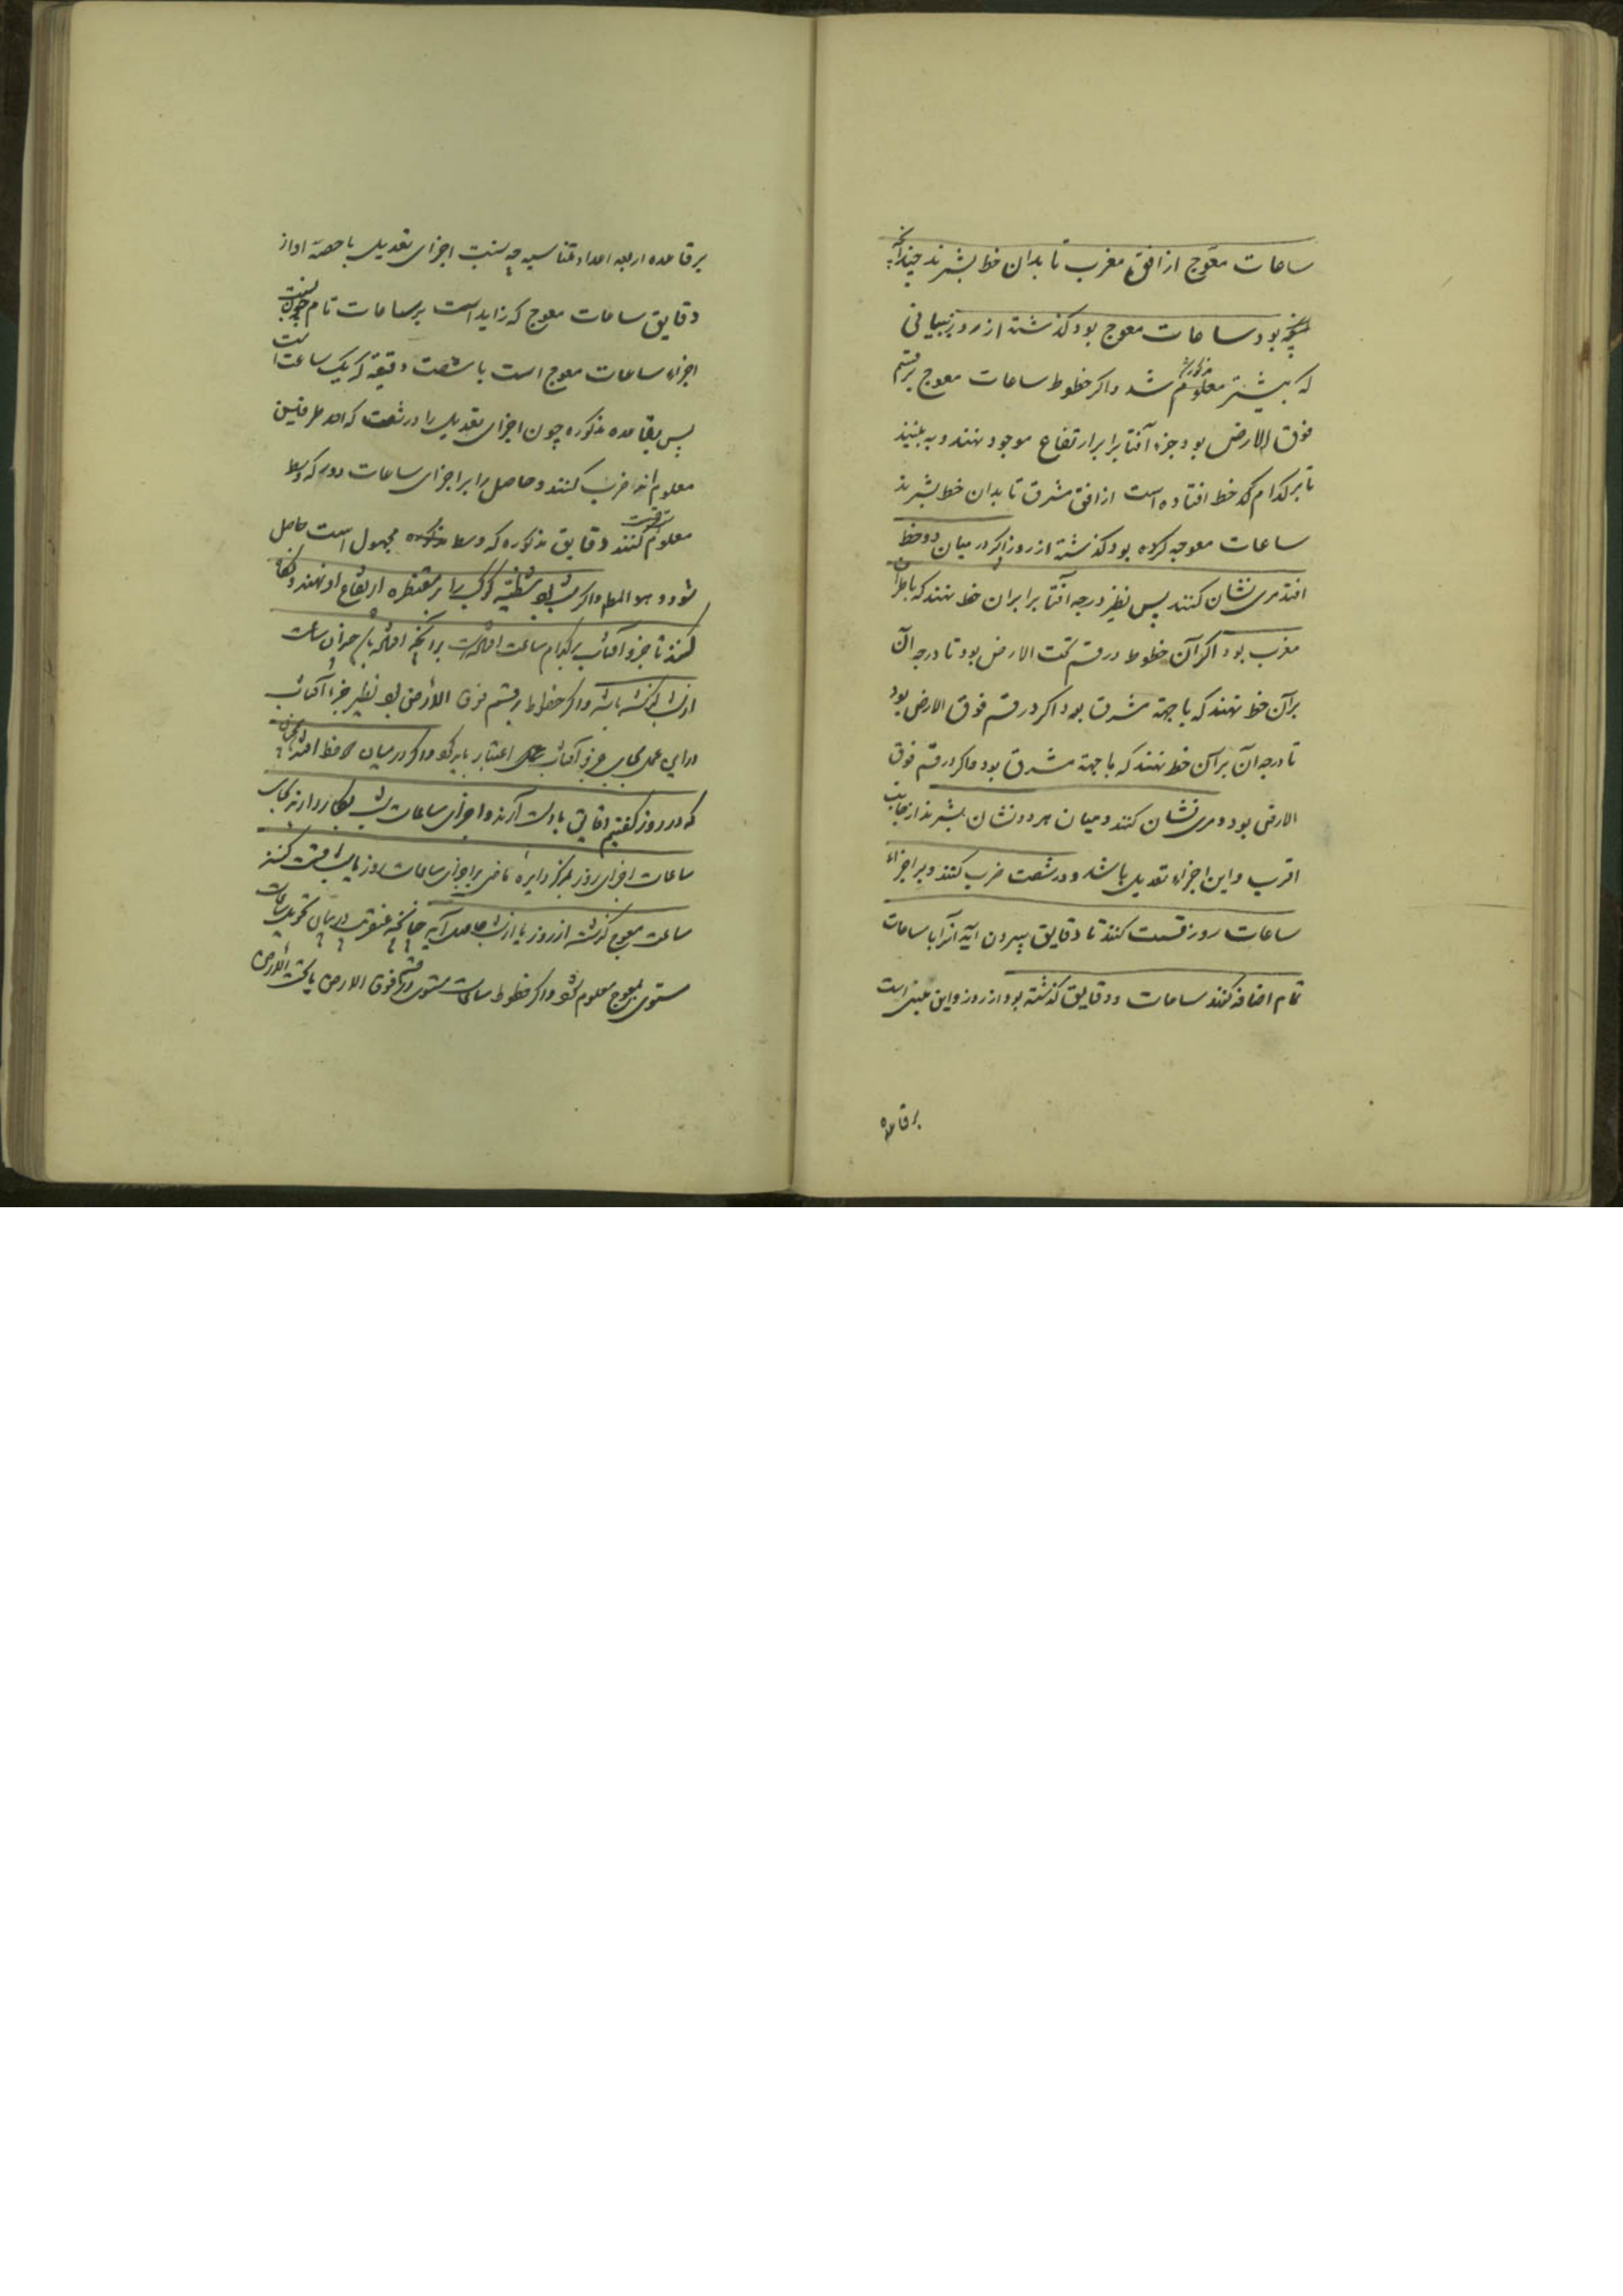 ساعات معوج از افق مغرب تا بدان خط بشمرند چندانچه
بود ساعات معوج بود کذشته از روز ببیانی
که بیشتر معلوم شد واکر خطوط ساعات معوج بر قسم
فوق الارض بود جزء آفتاب را بر ارتفاع موجود نهند و به بینند
تا بر کدام خط افتاده است از افق مشرق تا بدان خط بشمرند
ساعات معوجه کرده بود کذشته از روز اکر در میان دو خط
افتد مری نشان کنند پس نظیر درجه آفتاب را بر آن خط نهند که با طرف
مغرب بود اکر آن خطوط در قسم تحت الارض بود تا درجه آن
بر آن خط نهند که با جهة مشرق بود اکر در قسم فوق الارض بود
تا درجه آن بر آن خط نهند که با جهة مشرق بود واکر در قسم فوق
الارض بود و مری نشان کنند و میان هر دو نشان بشمرند از جانب
اقرب و این اجزاء تعدیل باشد و در شصت ضرب کنند و بر اجزاء
ساعات روز قسمت کنند تا دقایق بیرون آید آنرا با ساعات
تمام اضافه کنند ساعات و دقایق کذشته بود از روز و این مبنی است
بر قاعده
بر قاعده اربعه اعداد متناسبه چه نسبت اجزای تعدیل با حصهٔ او از
دقایق ساعات معوج که زاید است بر ساعات تام چون نسبت
اجزاء ساعات معوج است با شصت دقیقه که یک ساعت است
پس بقاعده مذکوره چون اجزای تعدیل را در شصت که احد طرفین
معلوم اند ضرب کنند و حاصل را بر اجزای ساعات روز که وسط
معلوم قسمت کنند دقایق مذکوره که وسط مجهول است حاصل
شود و هو المط واکر شب بود شظیه کوکب را بر مقنطره ارتفاع او نهند و نکاه
کنند تا جزو آفتاب بر کدام ساعت افتاده است بر آنچه افتاده باشد همان ساعت
از شب کذشته باشد واکر خطوط بر قسم فوق الارض بود نظیر جزء آفتاب
در این عمل بجای جزو آفتاب اعتبار باید کرد واکر در میان دو خط افتد
که در روز کفتیم دقایق بدست آرند و اجزای ساعات شب بکار دارند بجای
ساعات اجزای روز
ساعت معوج کذشته از روز یا از شب حاصل آید چنانچه عنقریب در بیان تحویل ساعات
مستوی بمعوج معلوم شود واکر خطوط ساعات مستوی در قسم فوق الارض یا تحت الارض